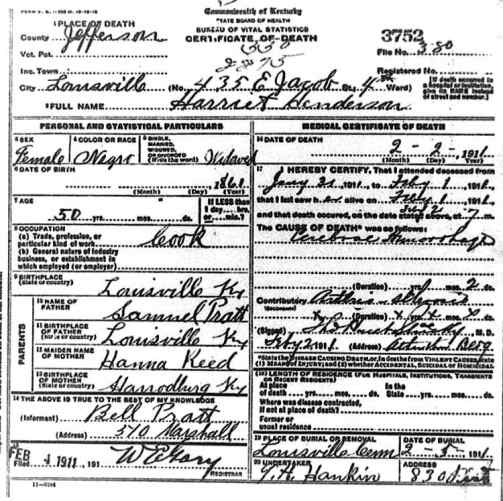 Commonwealth of Kentucky
STATE BOARD OF HEALTH
BUREAU OF VITAL STATISTICS
CERTIFICATE OF DEATH
1 PLACE OF DEATH
County Jefferson
Vot. Pct.
Inc. Town
City Louisville (No. 435 E Jacob St; 4 Ward)
3752
File No. 380
Registered No.
(If death occurred in a hospital or institution, give its NAME instead of street and number.)
2 FULL NAME Harriet Henderson
PERSONAL AND STATISTICAL PARTICULARS
3 SEX Female
4 COLOR OR RACE Negro
5 SINGLE, MARRIED, WIDOWED, OR DIVORCED (Write the word) Widowed
6 DATE OF BIRTH
1861
(Month) (Day) (Year)
7 AGE
50 yrs. mos. ds.
If LESS than 1 day, hrs. or min.?
8 OCCUPATION
(a) Trade, profession, or particular kind of work Cook
(b) General nature of industry business, or establishment in which employed (or employer)
9 BIRTHPLACE
(State or country) Louisville Ky
PARENTS
10 NAME OF FATHER Samuel Pratt
11 BIRTHPLACE OF FATHER
(State or country) Louisville Ky
12 MAIDEN NAME OF MOTHER Hanna Reed
13 BIRTHPLACE OF MOTHER
(State or country) Harrodburg Ky
14 THE ABOVE IS TRUE TO THE BEST OF MY KNOWLEDGE
(Informant) Bell Pratt
(Address) 540 Marshall
15
Filed FEB 4 1911, 191
REGISTRAR
11-6184
MEDICAL CERTIFICATE OF DEATH
16 DATE OF DEATH
2-2-, 1911
(Month) (Day) (Year)
17 I HEREBY CERTIFY, That I attended deceased from
Jany 31 1911, to Feby 1, 1911,
that I last saw her alive on Feby 1, 1911,
and that death occurred, on the date stated above, at 7 m.
The CAUSE OF DEATH* was as follows:
Cerebral Hemorrhage
(Duration) yrs. mos. 2 ds.
Contributory
(SECONDARY)
(Duration) yrs. mos. ds.
(Signed) M. D.
Feby 2 1911 (Address)
*State the DISEASE CAUSING DEATH, or, in deaths from VIOLENT CAUSES, state (1) MEANS OF INJURY; and (2) whether ACCIDENTAL, SUICIDAL or HOMICIDAL.
18 LENGTH OF RESIDENCE (FOR HOSPITALS, INSTITUTIONS, TRANSIENTS OR RECENT RESIDENTS)
At place of death yrs. mos. ds. In the State yrs. mos. ds.
Where was disease contracted, if not at place of death?
Former or usual residence
19 PLACE OF BURIAL OR REMOVAL Louisville Cem
DATE OF BURIAL
2-5-, 1911
20 UNDERTAKER
J. H. Hankin
ADDRESS
830